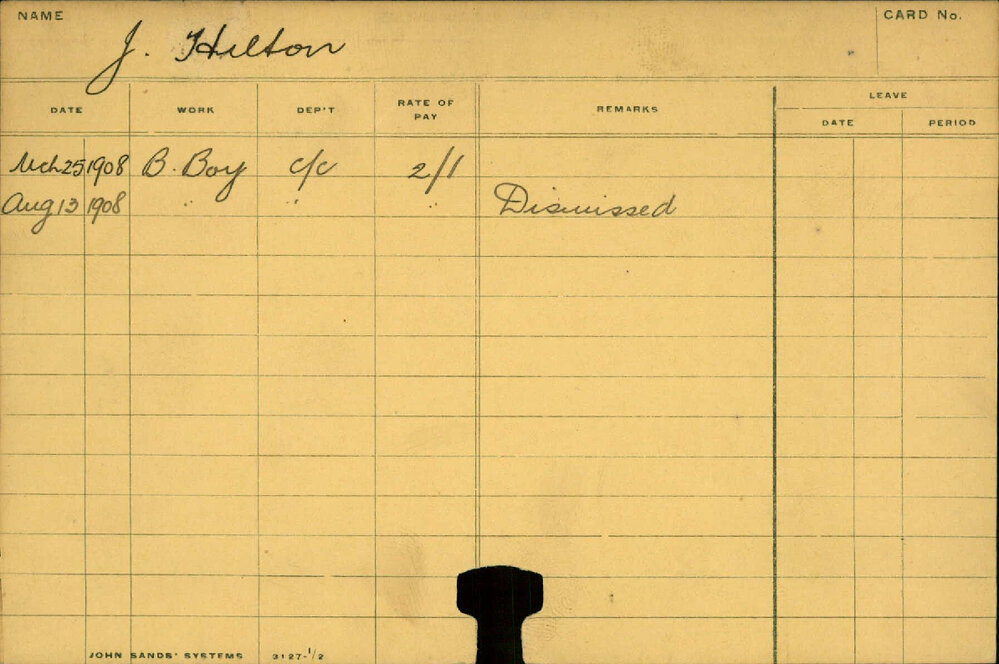 NAME J. Hilton CARD No.
DATE WORK DEP'T RATE OF PAY REMARKS LEAVE
DATE PERIOD
Mch 25 1908 B. Boy c/c 2/1
Aug 13 1908 " " " Dismissed
JOHN SANDS' SYSTEMS 3127-1/2